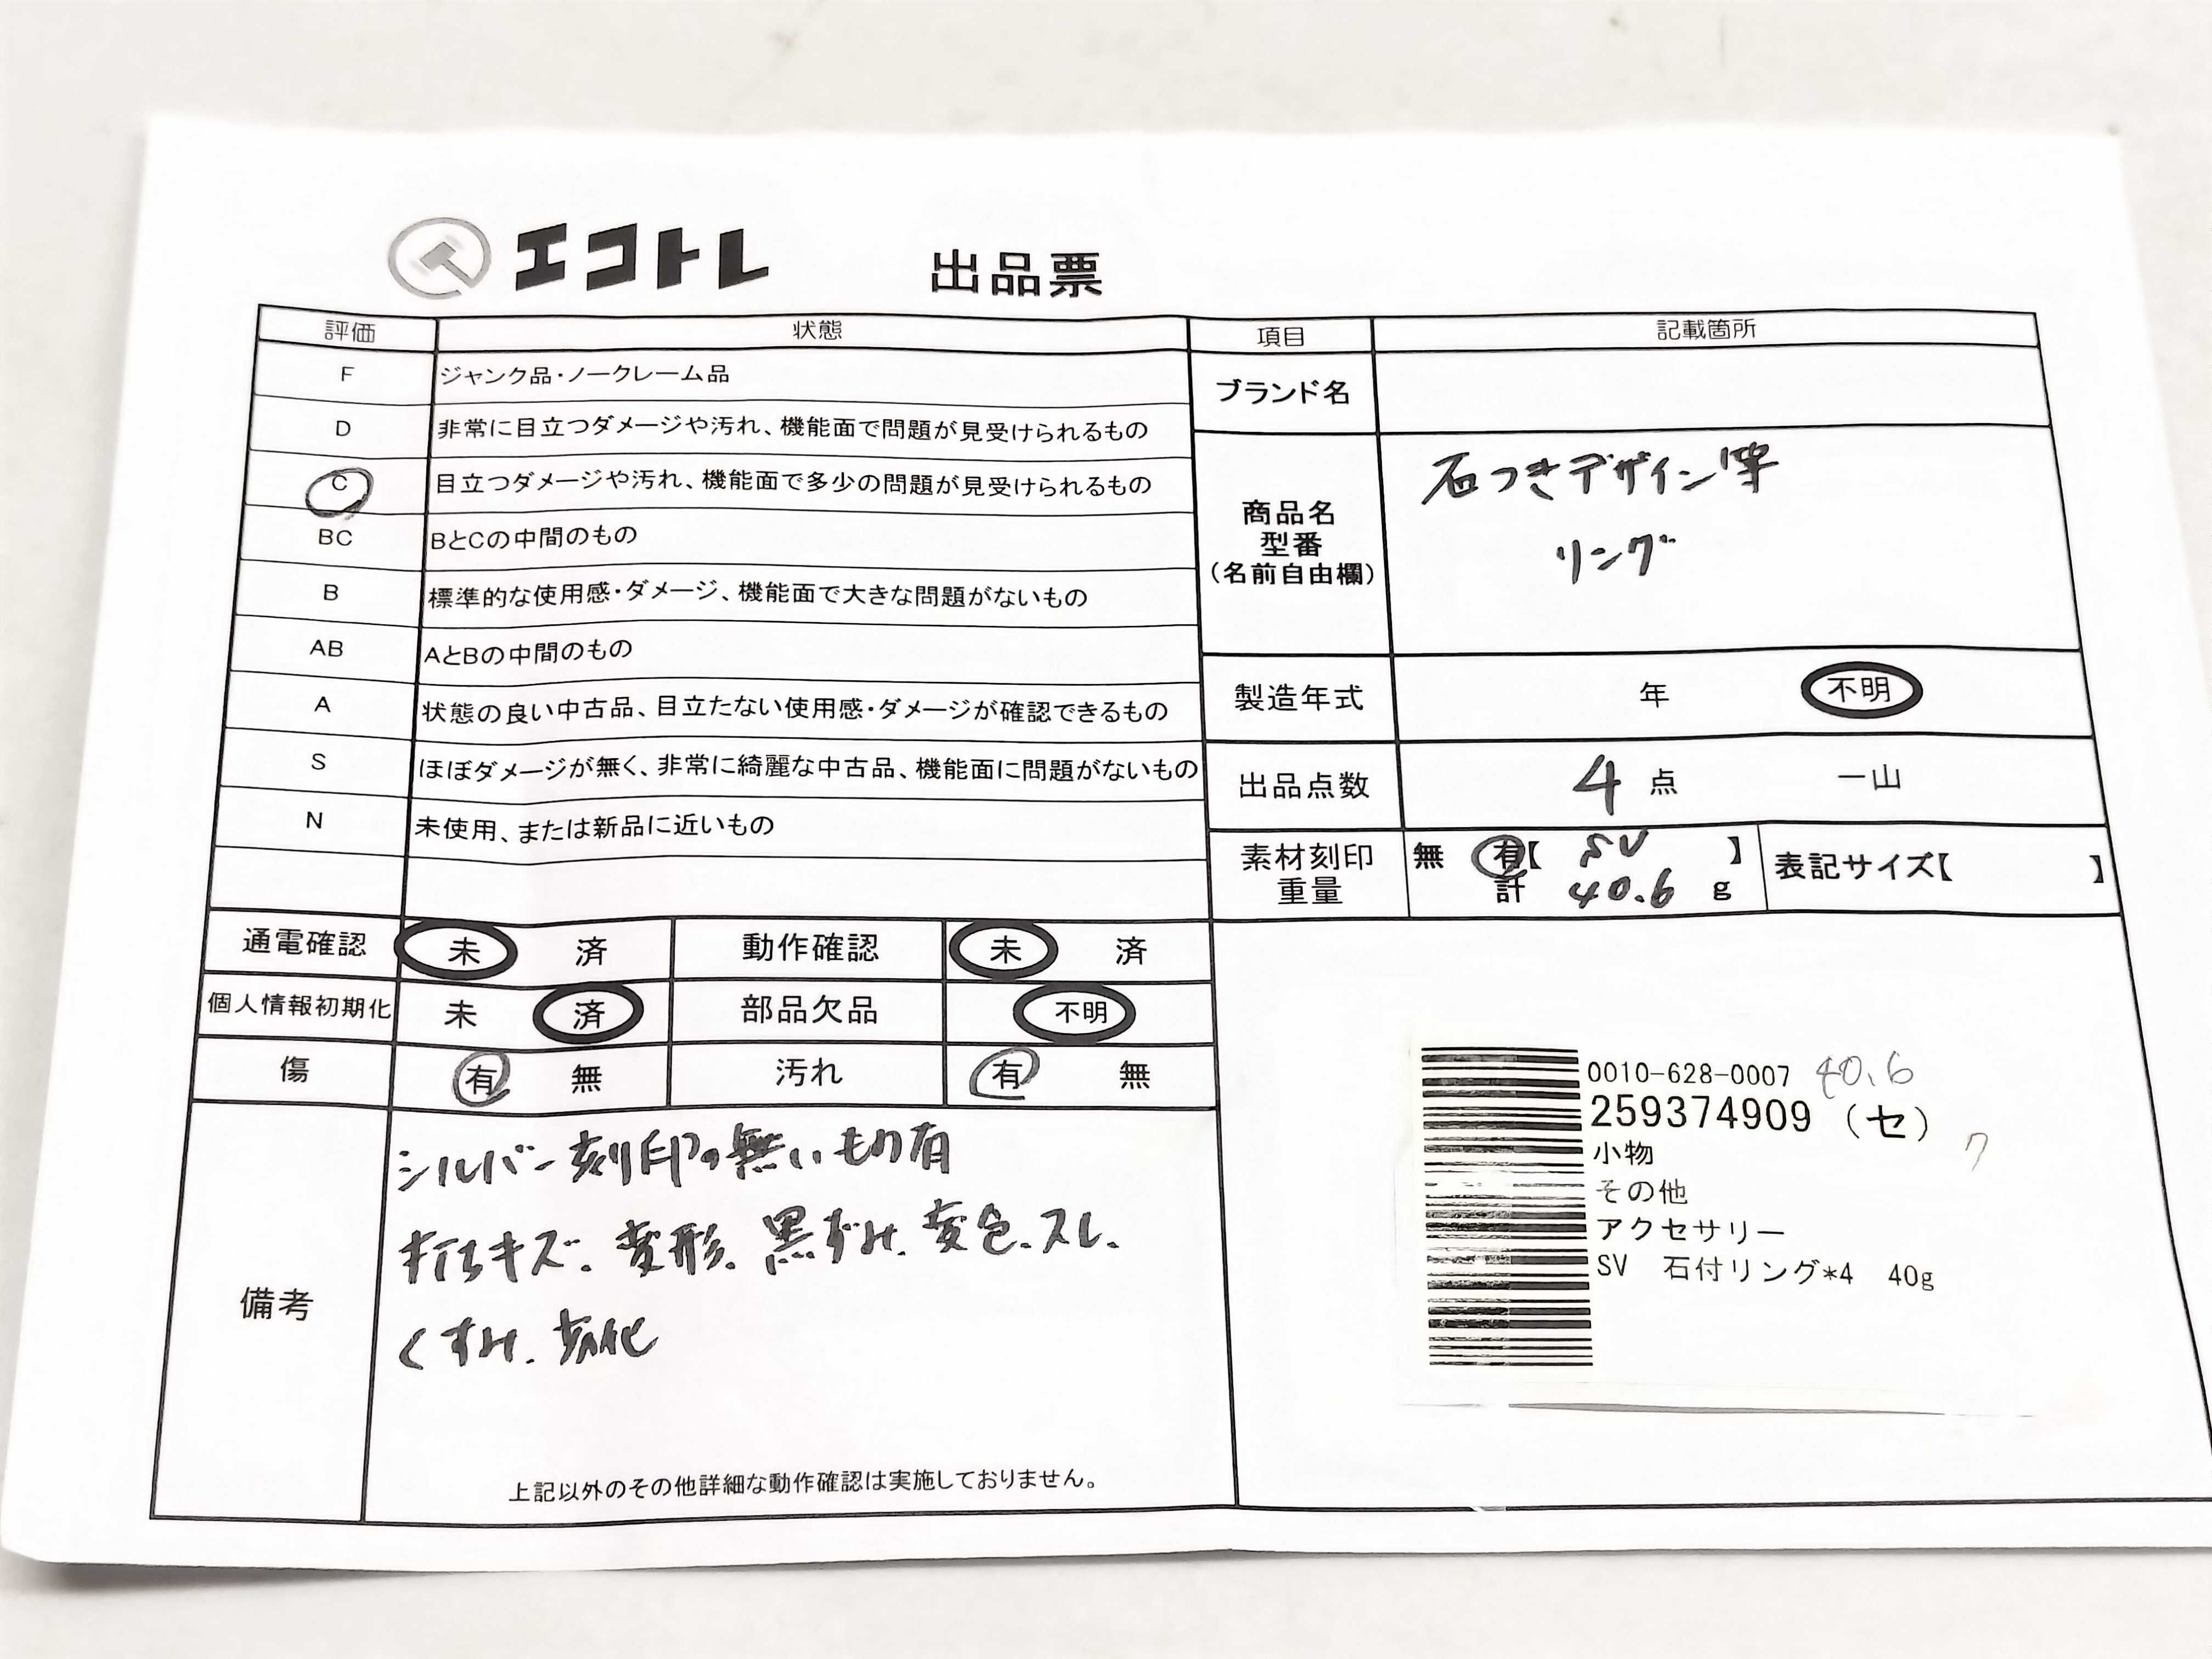 エコトレ 出品票
評価 状態
F ジャンク品・ノークレーム品
D 非常に目立つダメージや汚れ、機能面で問題が見受けられるもの
C 目立つダメージや汚れ、機能面で多少の問題が見受けられるもの
BC BとCの中間のもの
B 標準的な使用感・ダメージ、機能面で大きな問題がないもの
AB AとBの中間のもの
A 状態の良い中古品、目立たない使用感・ダメージが確認できるもの
S ほぼダメージが無く、非常に綺麗な中古品、機能面に問題がないもの
N 未使用、または新品に近いもの
通電確認 未 済 動作確認 未 済
個人情報初期化 未 済 部品欠品 不明
傷 有 無 汚れ 有 無
備考
シルバー刻印の無いもの有
打ちキズ、変形、黒ずみ、変色、スレ、
くすみ、劣化
上記以外のその他詳細な動作確認は実施しておりません。
項目 記載箇所
ブランド名
商品名
型番
(名前自由欄)
石つきデザイン等
リング
製造年式 年 不明
出品点数 4 点 一山
素材刻印 無 有【 SV 】
重量 計 40.6 g
表記サイズ【 】
0010-628-0007 40.6
259374909 (セ)
ク
小物
その他
アクセサリー
SV 石付リング*4 40g